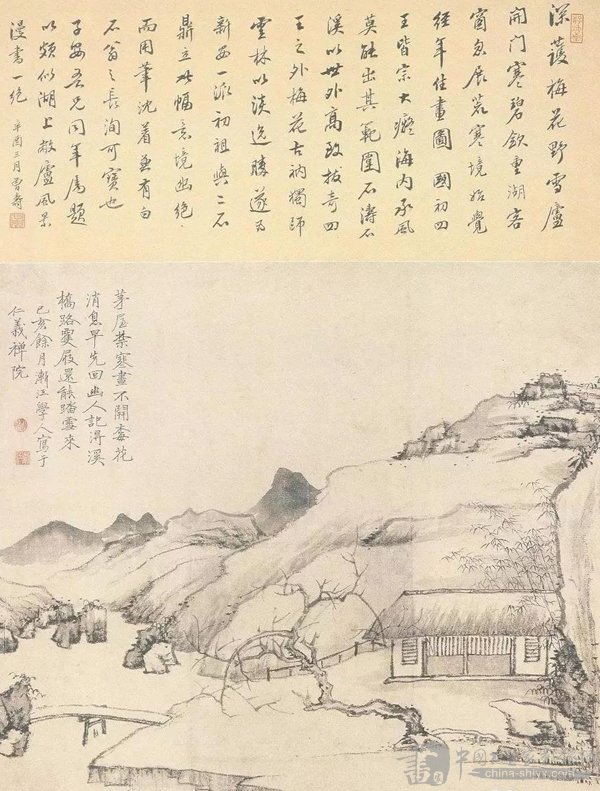 深護梅花野雪廬
開门寒碧欲重湖客
窗忽展荒寒境始覺
經年佳畫圖 國初四
王皆宗大癡海内承風
莫能出其範圍石濤石
溪以世外高致拔奇四
王之外梅花古衲獨師
雲林以淡逸勝遂爲
新安一派初祖與二石
鼎立此幅意境幽絶
而用筆沈着兼有白
石翁之長洵可寶也
子安吾兄同年屬題
以頗似湖上敝廬風景
漫書一絶 辛酉三月曾壽
茅屋禁寒晝不開梅花
消息早先回幽人記得溪
橋路 屐還能踏雪來
己亥餘月漸江學人寫于
仁義禪院